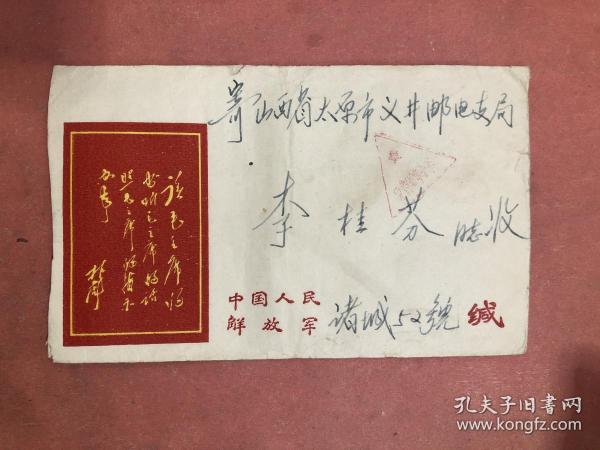 寄山西省太原市义井邮电支局
李桂芬同志收
中国人民
解放军
诸城52号 缄
读毛主席的
书听毛主席的话
照毛主席的指示
办事
林彪
孔夫子旧书网
www.kongfz.com